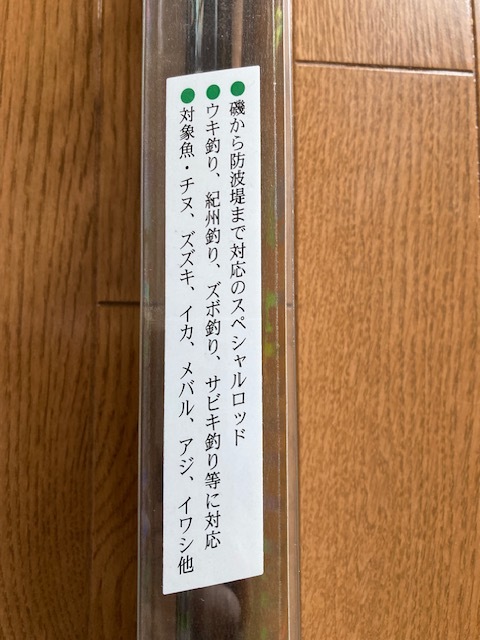 ●磯から防波堤まで対応のスペシャルロッド
●ウキ釣り、紀州釣り、ズボ釣り、サビキ釣り等に対応
●対象魚・チヌ、ズズキ、イカ、メバル、アジ、イワシ他